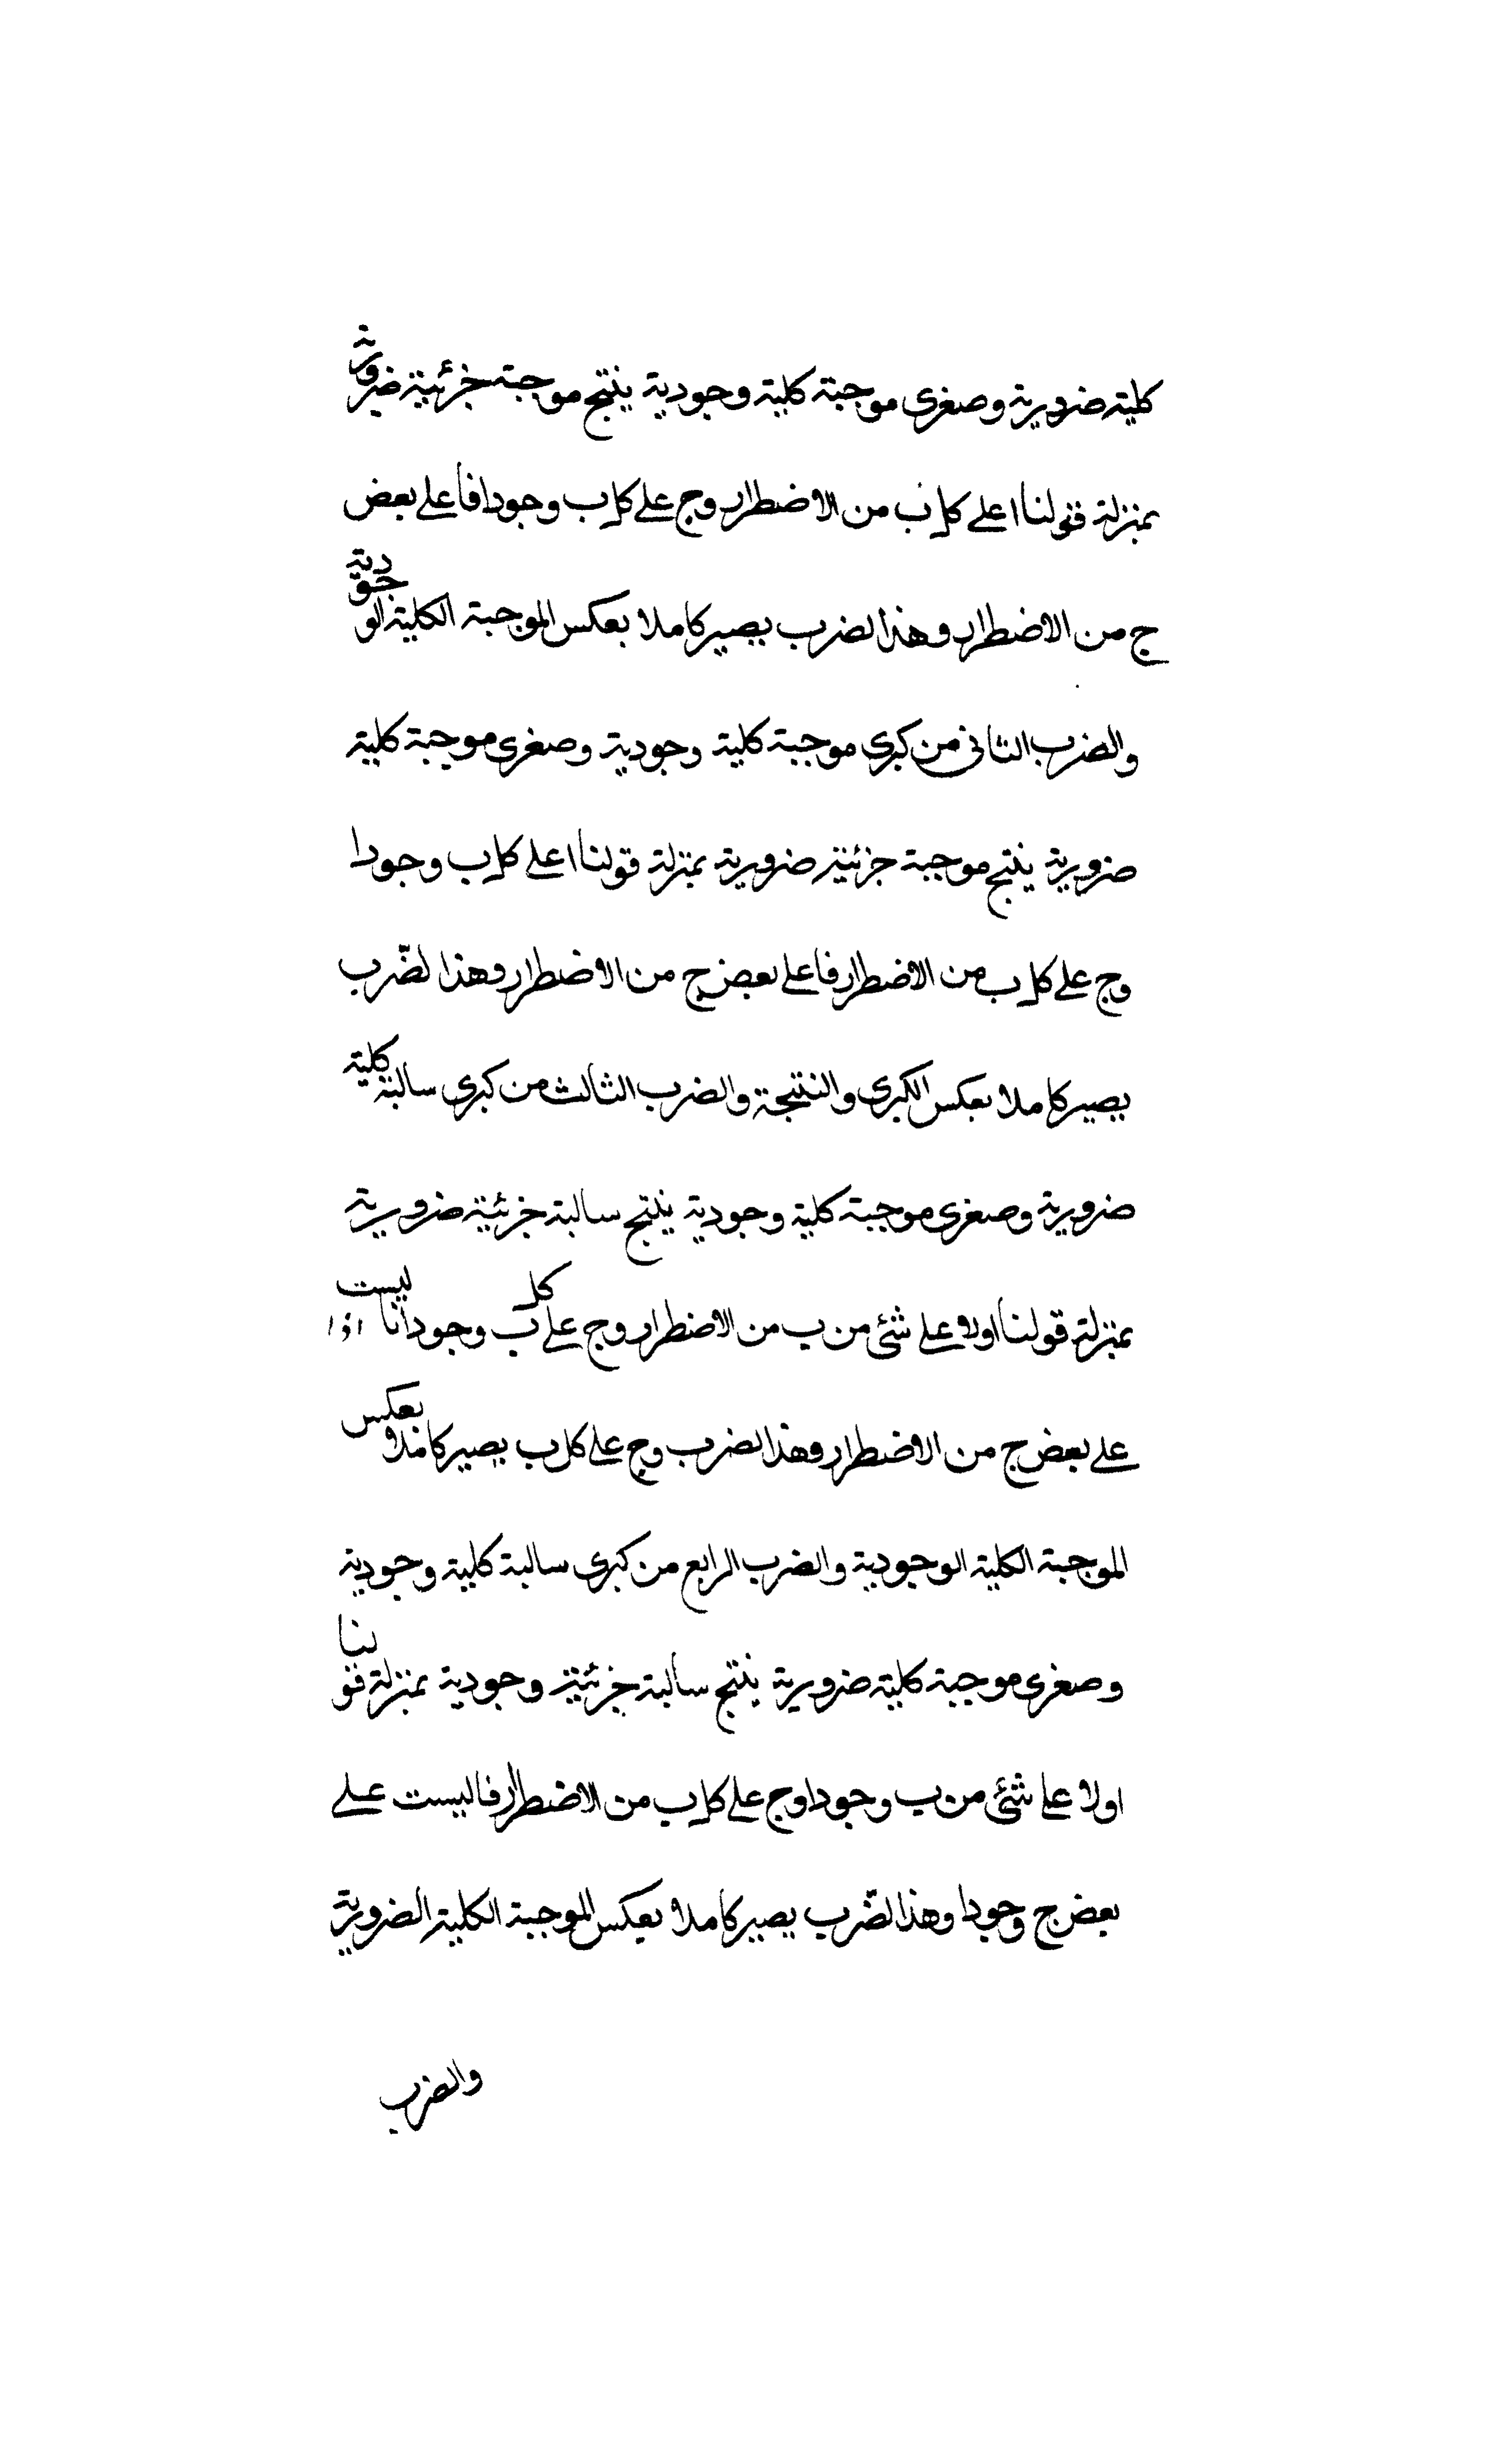 كلية ضرورية وصغرى موجبة كلية وجودية ينتج موجبة جزئية ضرورية
بمنزلة قولنا ا على كل ب من الاضطرار وج على كل ب وجودا فا على بعض
ج من الاضطرار وهذا لضرب يصير كاملا بعكس الموجبة الكلية الوجودية
والضرب الثانى من كبرى موجبة كلية وجودية وصغرى موجبة كلية
ضرورية ينتج موجبة جزئية ضرورية بمنزلة قولنا ا على كل ب وجودا
وج على كل ب من الاضطرار فا على بعض ج من الاضطرار وهذا لضّرب
يصير كاملا بعكس الكبرى والنتيجة والضرب الثالث من كبرى سالبة كلية
ضرورية وصغرى موجبة كلية وجودية ينتج سالبة جزئية ضرورية
بمنزلة قولنا اولا على شئ من ب من الاضطرار وج على كل ب وجودا فا ليست
على بعض ج من الاضطرار وهذا لضرب وج على كل ب يصير كاملا بعكس
الموجبة الكلية الوجودية والضرب الرابع من كبرى سالبة كلية وجودية
وصغرى موجبة كلية ضرورية ينتج سالبة جزئية وجودية بمنزلة قولنا
اولا على شئ من ب وجودا وج على كل ب من الاضطرار فا ليست على
بعض ج وجودا وهذا لضّرب يصير كاملا بعكس الموجبة الكلية الضرورية
والضرب